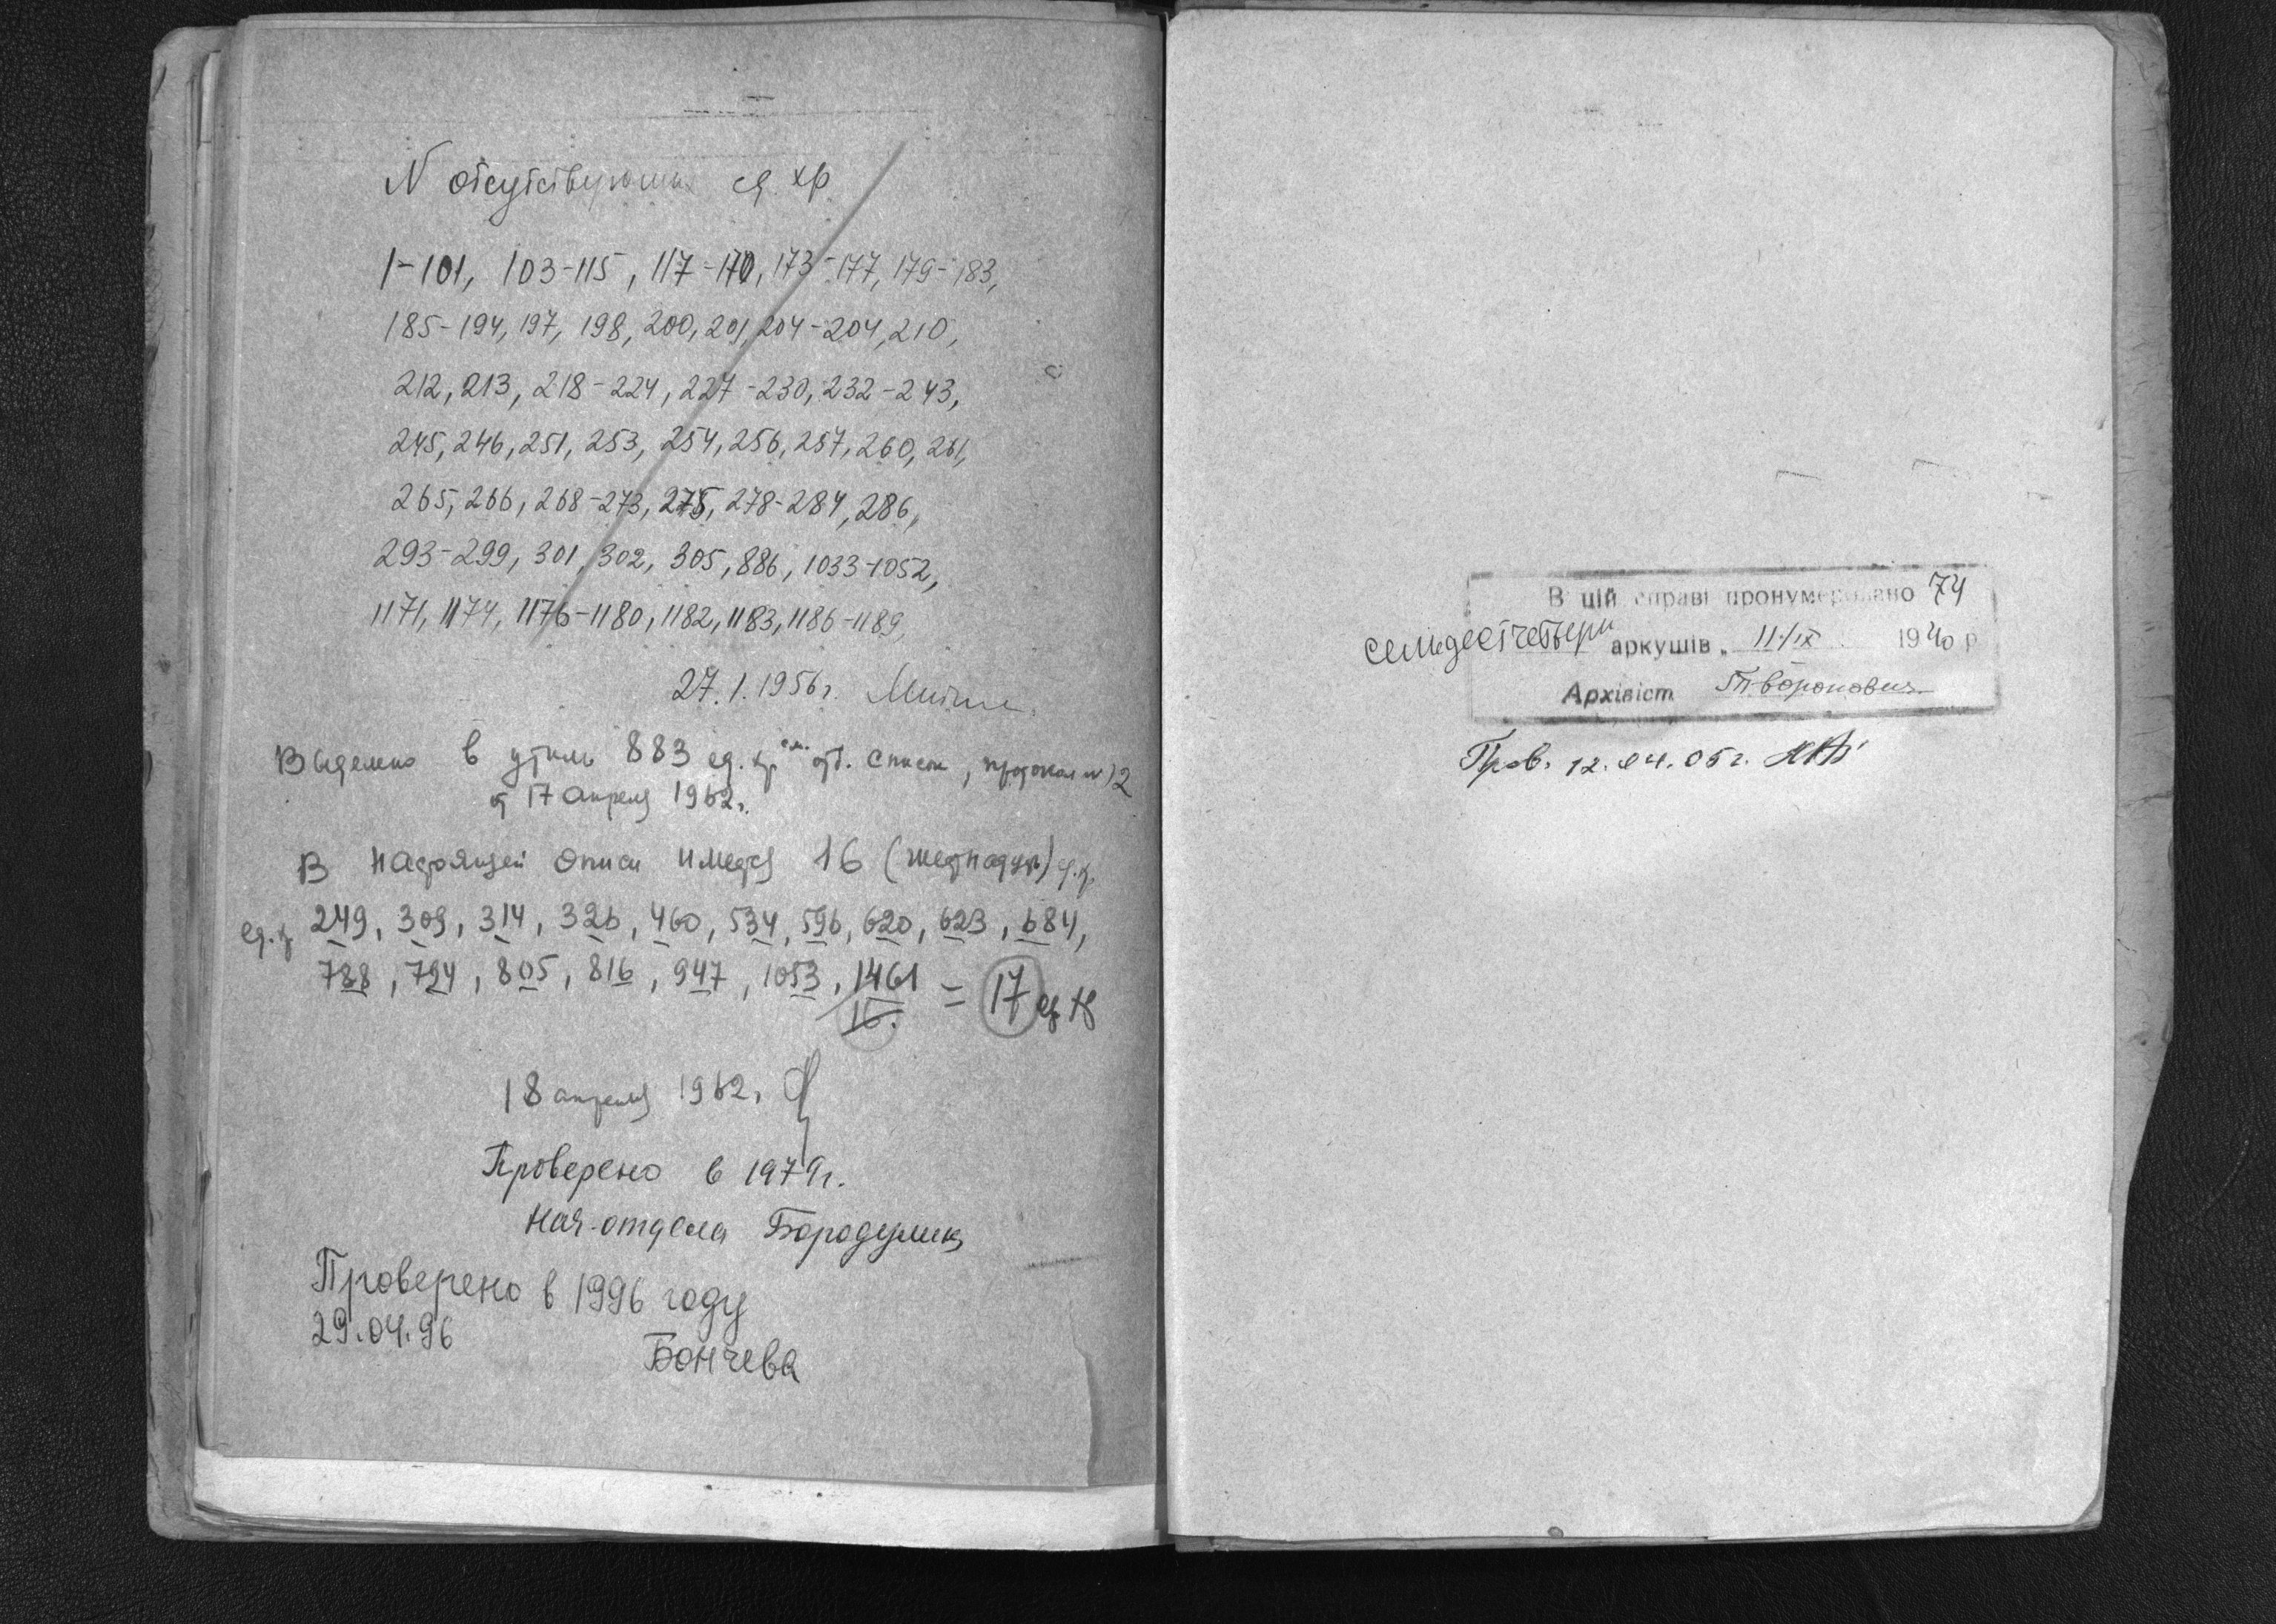 N отсутствующих ед. хр
1-101, 103-115, 117-170, 173-177, 179-183,
185-194, 197, 198, 200, 201, 204-204, 210,
212, 213, 218-224, 227-230, 232-243,
245, 246, 251, 253, 254, 256, 257, 260, 261,
265, 266, 268-273, 275, 278-284, 286,
293-299, 301, 302, 305, 886, 1033-1052,
1171, 1174, 1176-1180, 1182, 1183, 1186-1189,
27.1.1956г.
Выделено в утиль 883 ед. хр. см. отд. список, протокол N 2
от 17 апреля 1962г.
В настоящей описи имеется 16 (шестнадцать) ед. хр.
ед. хр 249, 309, 314, 326, 460, 534, 596, 620, 623, 684,
788, 794, 805, 816, 947, 1053, 1461 = 17 ед. хр
16.
18 апреля 1962г.
Проверено в 1979г.
Нач. отдела
Проверено в 1996 году
29.04.96
Бончева
В цій справі пронумеровано 74
семьдесятчетыри аркушів „ 11/IX 1940 р
Архівіст Т Воронович
Пров. 12.04.05г.